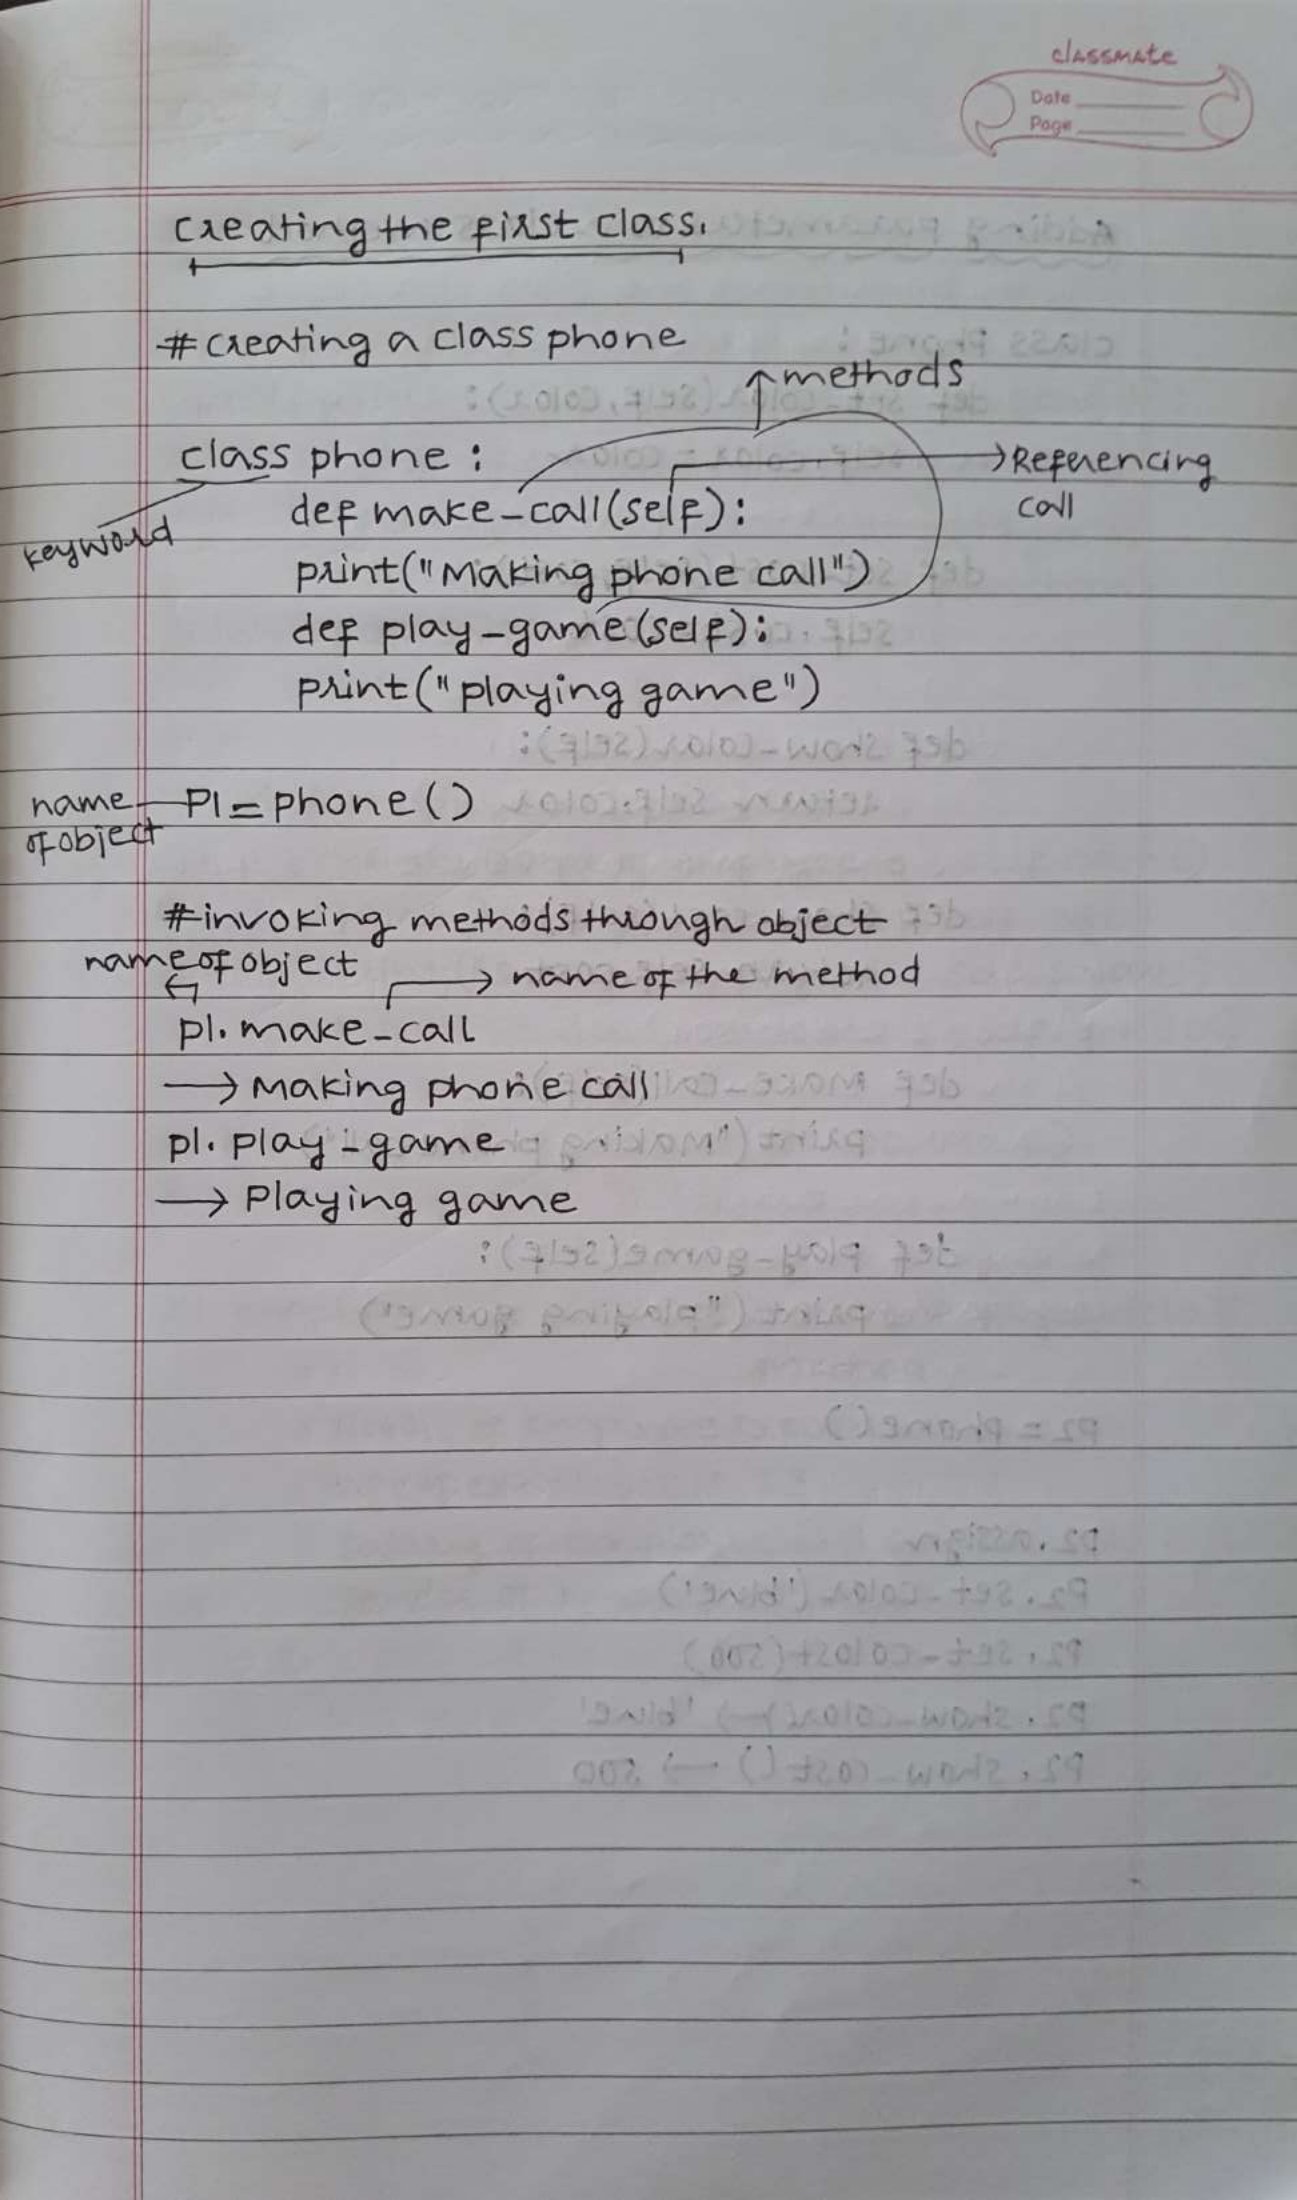 classmate
Date
Page
Creating the first class.
#creating a class phone
methods
class phone :
Referencing
call
keyword
def make-call(self):
print("Making phone call")
def play-game(self):
print("playing game")
name
of object
P1=phone()
#invoking methods through object
name of object
name of the method
p1. make-call
→ Making phone call
p1. play-game
→ Playing game